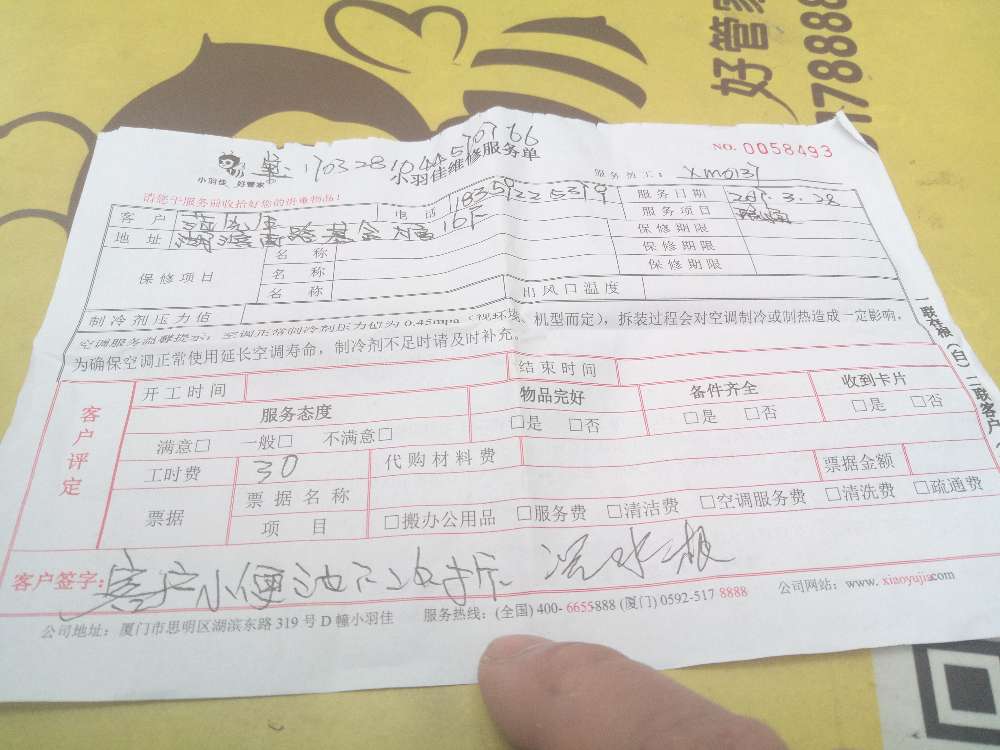 好管家
78888
小羽佳 好管家
小羽佳维修服务单
NO. 0058493
服务员工: XM0137
请您于服务前收拾好您的贵重物品!
客户
电话
服务日期 2017.3.28
地址 湖滨南路基金大厦10F
服务项目 疏通
保修项目
名称 保修期限
名称 保修期限
名称 保修期限
制冷剂压力值 出风口温度
空调服务温馨提示: 空调正常制冷剂压力值为 0.45mpa (视环境、机型而定), 拆装过程会对空调制冷或制热造成一定影响,
为确保空调正常使用延长空调寿命, 制冷剂不足时请及时补充。
客户评定
开工时间 结束时间
服务态度 物品完好 备件齐全 收到卡片
满意□ 一般□ 不满意□ □是 □否 □是 □否 □是 □否
工时费 30 代购材料费 票据金额
票据
票据名称
项目 □搬办公用品 □服务费 □清洁费 □空调服务费 □清洗费 □疏通费
客户签字: 客户小便池
公司地址: 厦门市思明区湖滨东路 319 号 D 幢小羽佳 服务热线: (全国) 400- 6655888 (厦门) 0592-517 8888 公司网站: www. xiaoyujia.com
一联存根 (白) 二联客户